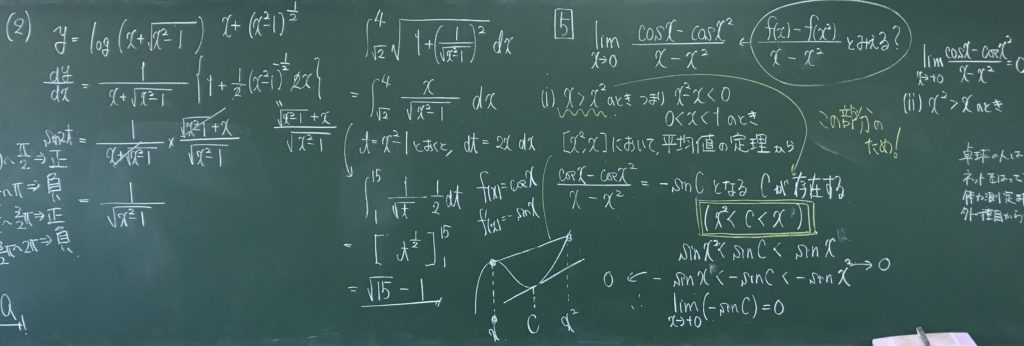 (2) y = log(x+√(x²-1))
x+(x²-1)^{1/2}
dy/dx = 1/(x+√(x²-1)) {1+1/2(x²-1)^{-1/2} 2x}
= 1/(x+√(x²-1)) × (√(x²-1)+x)/√(x²-1)
(√(x²-1)+x)/√(x²-1)
= 1/√(x²-1)
sin2t
π/2 ⇒ 正
⇒ 負
⇒ 正
2π ⇒ 負
∫_{√2}^{4} √(1+(1/√(x²-1))²) dx
= ∫_{√2}^{4} x/√(x²-1) dx
t=x²-1とおくと, dt=2x dx
∫_{1}^{15} 1/√t · 1/2 dt
= [t^{1/2}]_{1}^{15}
= √15 - 1
f(x)=cosx
f'(x)=-sinx
C
5
lim_{x→0} (cosx-cosx²)/(x-x²) ← (f(x)-f(x²))/(x-x²) とみえる?
(i) x>x²のとき つまり x²-x<0
0<x<1のとき
[x²,x]において,平均値の定理から
(cosx-cosx²)/(x-x²) = -sinC となる Cが存在する
(x²<C<x)
この部分の
ため!
sinx²<sinC<sinx
0 ← -sinx<-sinC<-sinx² → 0
∴ lim_{x→+0}(-sinC)=0
lim_{x→+0} (cosx-cosx²)/(x-x²) = 0
(ii) x²>xのとき
卓球の人は